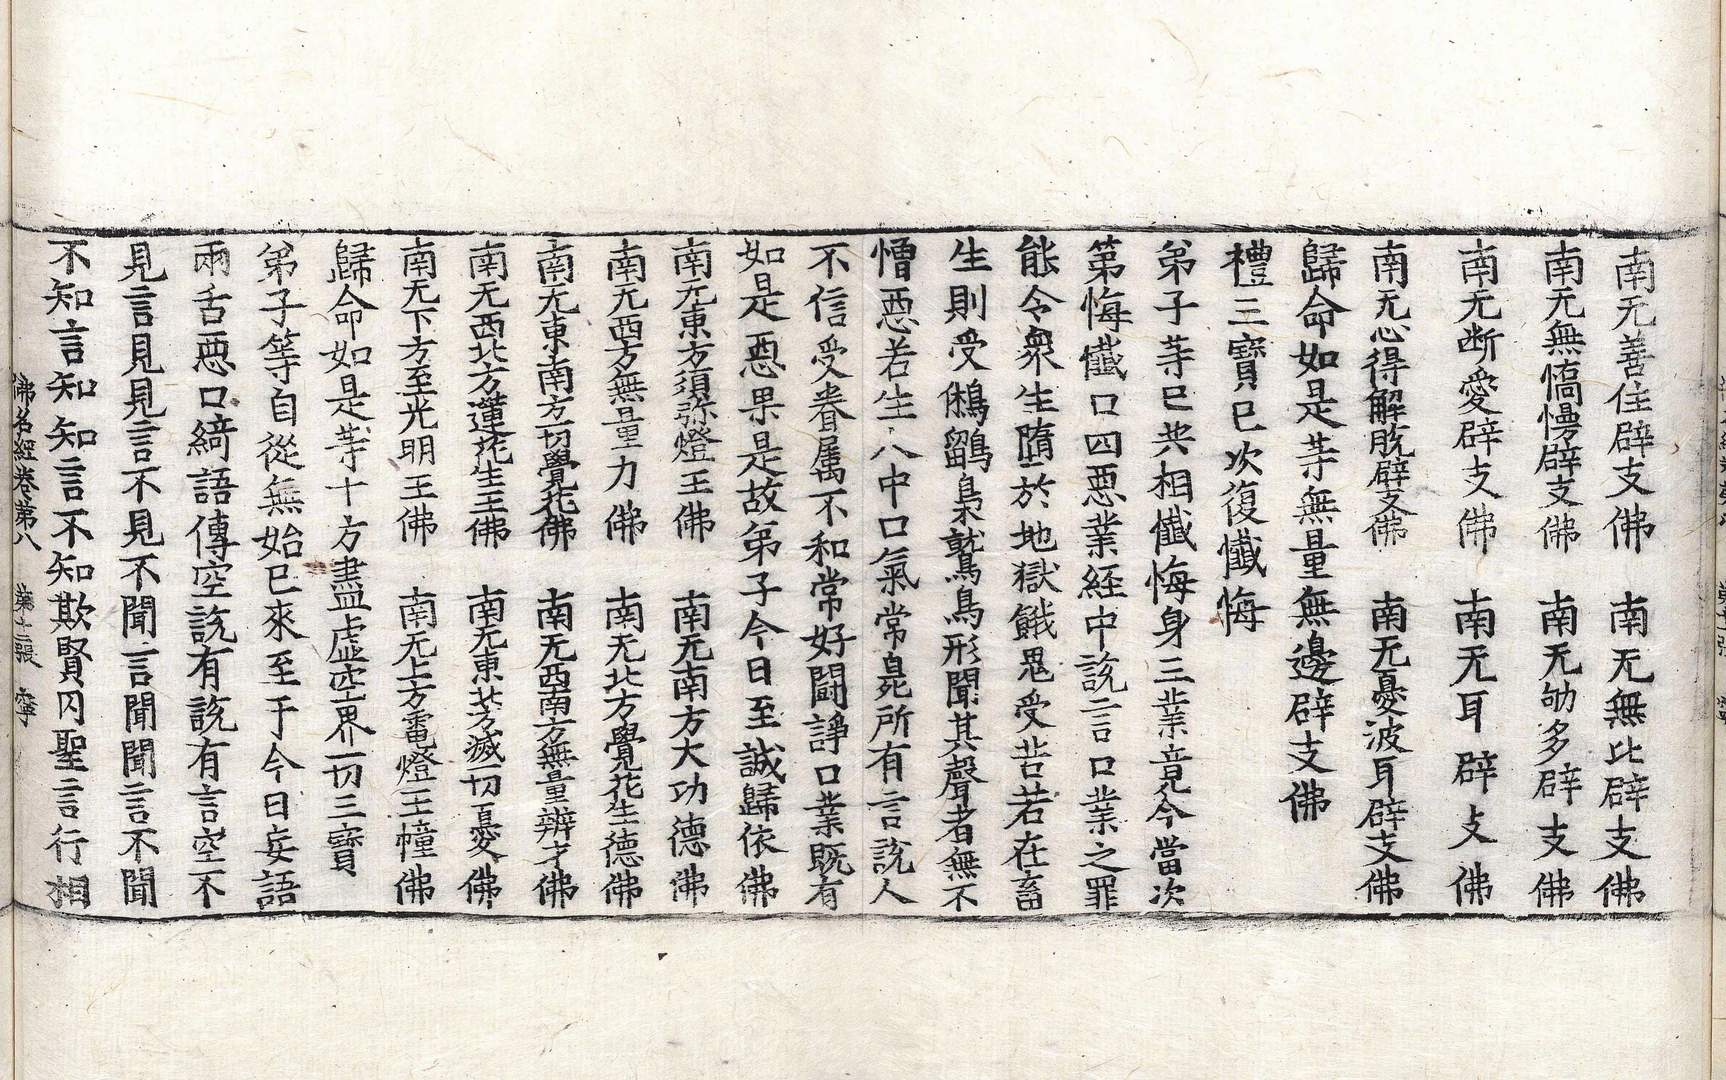 南无善住辟支佛　南无無比辟支佛
南无無憍慢辟支佛　南无劬多辟支佛
南无断愛辟支佛　南无耳辟支佛
南无心得解脫辟支佛　南无憂波耳辟支佛
歸命如是等無量無邊辟支佛
禮三寶已次復懺悔
弟子等已共相懺悔身三業竟今當次
第悔懺口四惡業經中說言口業之罪
能令衆生墮於地獄餓鬼受苦若在畜
生則受鵂鶹梟鷲鳥形聞其聲者無不
憎惡若生人中口氣常臭所有言說人
不信受眷属不和常好鬪諍口業既有
如是惡果是故弟子今日至誠歸依佛
南无東方須弥燈王佛　南无南方大功德佛
南无西方無量力佛　南无北方覺花生德佛
南无東南方一切覺花佛　南无西南方無量辨才佛
南无西北方蓮花生王佛　南无東北方滅一切憂佛
南无下方至光明王佛　南无上方電燈王幢佛
歸命如是等十方盡虛空界一切三寶
弟子等自從無始已來至于今日妄語
兩舌惡口綺語傳空說有說有言空不
見言見見言不見不聞言聞聞言不聞
不知言知知言不知欺賢罔聖言行相
佛名經卷第八　第十二張　寧